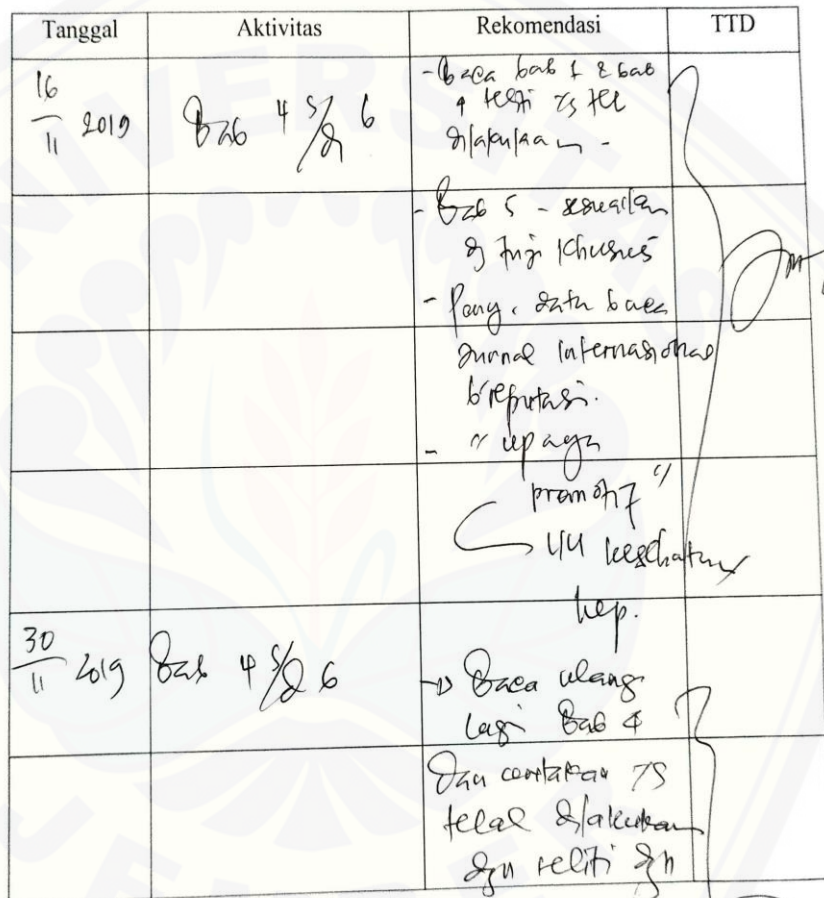 Tanggal Aktivitas Rekomendasi TTD
16/11 2019 Bab 4 s/d 6 - Baca bab 1 & bab
4 teliti yg tel
dilakukan -
- Bab 5 - sesuaikan
dg tuj Khusus
- data baca
Jurnal internasional
b'reputasi.
- " upaya
promotif "
UU kesehatan
kep.
30/11 2019 Bab 4 s/d 6 → Baca ulang
lagi Bab 4
Dan yg
telal dilakukan
dgn teliti dgn
UNIVERSITAS